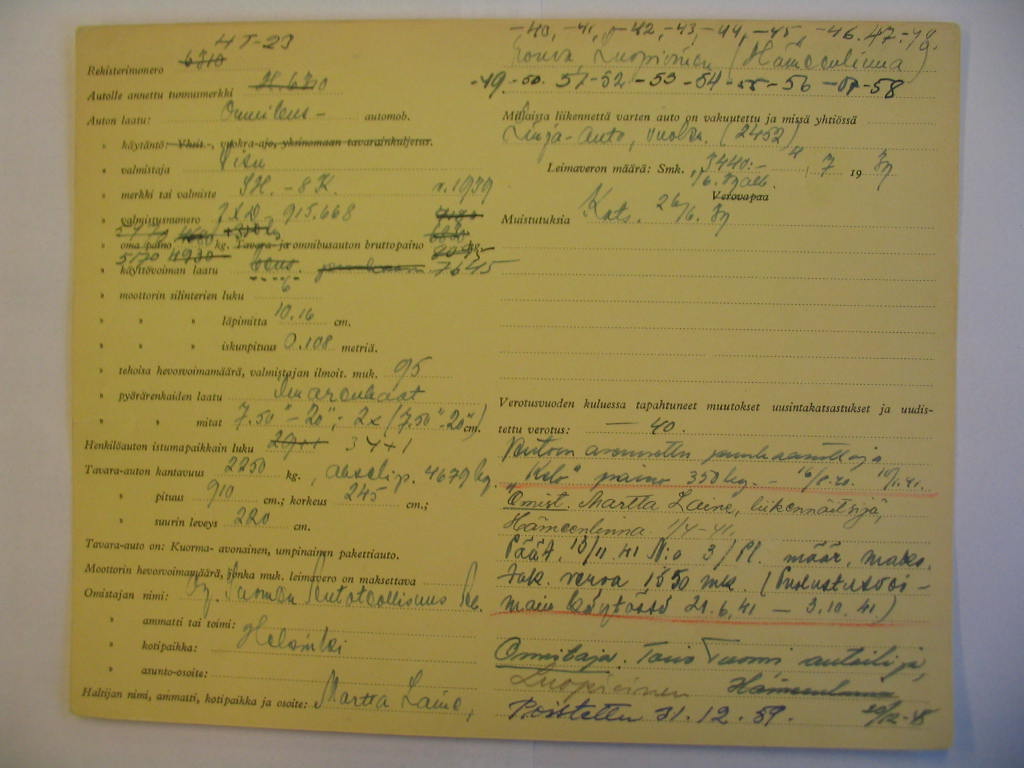 HT-23
Rekisterinumero 6710
Autolle annettu tunnusmerkki H. 6710
Auton laatu: Omnibus - automob.
» käytäntö: Yksit.-, vuokra-ajo, yksinomaan tavarainkuljetus.
» valmistaja Sisu
» merkki tai valmiste SH. - 8 K. v. 1939
» valmistusnumero JXD 915.668
» oma paino kg. Tavara- ja omnibusauton bruttopaino kg.
5170 4930
» käyttövoiman laatu bens. 7645
» moottorin silinterien luku 6
» » » läpimitta 10.16 cm.
» » » iskunpituus 0.108 metriä.
» tehoisa hevosvoimamäärä, valmistajan ilmoit. muk. 95
» pyöränrenkaiden laatu Ilmarenkaat
» » mitat 7.50"-20"; 2x(7.50"-20") cm.
Henkilöauton istumapaikkain luku 29+1 34+1
Tavara-auton kantavuus 2250 kg., akselip. 4679 kg.
» pituus 910 cm.; korkeus 245 cm.;
» suurin leveys 220 cm.
Tavara-auto on: Kuorma- avonainen, umpinainen pakettiauto.
Moottorin hevosvoimamäärä, jonka muk. leimavero on maksettava
Omistajan nimi: Oy. Suomen Autoteollisuus Ab.
» ammatti tai toimi:
» kotipaikka: Helsinki
» asunto-osoite:
Haltijan nimi, ammatti, kotipaikka ja osoite: Martta Laine,
-40, -41, -42, -43, -44, -45, -46. 47.-48.
Luopioinen (Hämeenlinna)
-49.-50. 51-52 -53-54-55-56 -57-58
Millaista liikennettä varten auto on vakuutettu ja missä yhtiössä
Linja-auto, (2452)
Leimaveron määrä: Smk. 3440:- 4/7 1939
Verovapaa
Muistutuksia Kats. 26/6. 39
Verotusvuoden kuluessa tapahtuneet muutokset uusintakatsastukset ja uudis-
tettu verotus: - 40.
Autoon asennettu puukaasuttaja
paino 350 kg. -
"Omist. Martta Laine, liikennöitsijä,
Hämeenlinna 1/4-41.
Päät. 10/11 41 N:o 3/Pl. määr. maks.
tak. veroa 1550 mk. (Puolustusvoi-
main käytössä 21.6.41 - 3.10.41)
Omistaja. Toivo Tuomi autoilija,
Luopioinen Hämeenlinna
Poistettu 31.12.59. 20/12-48